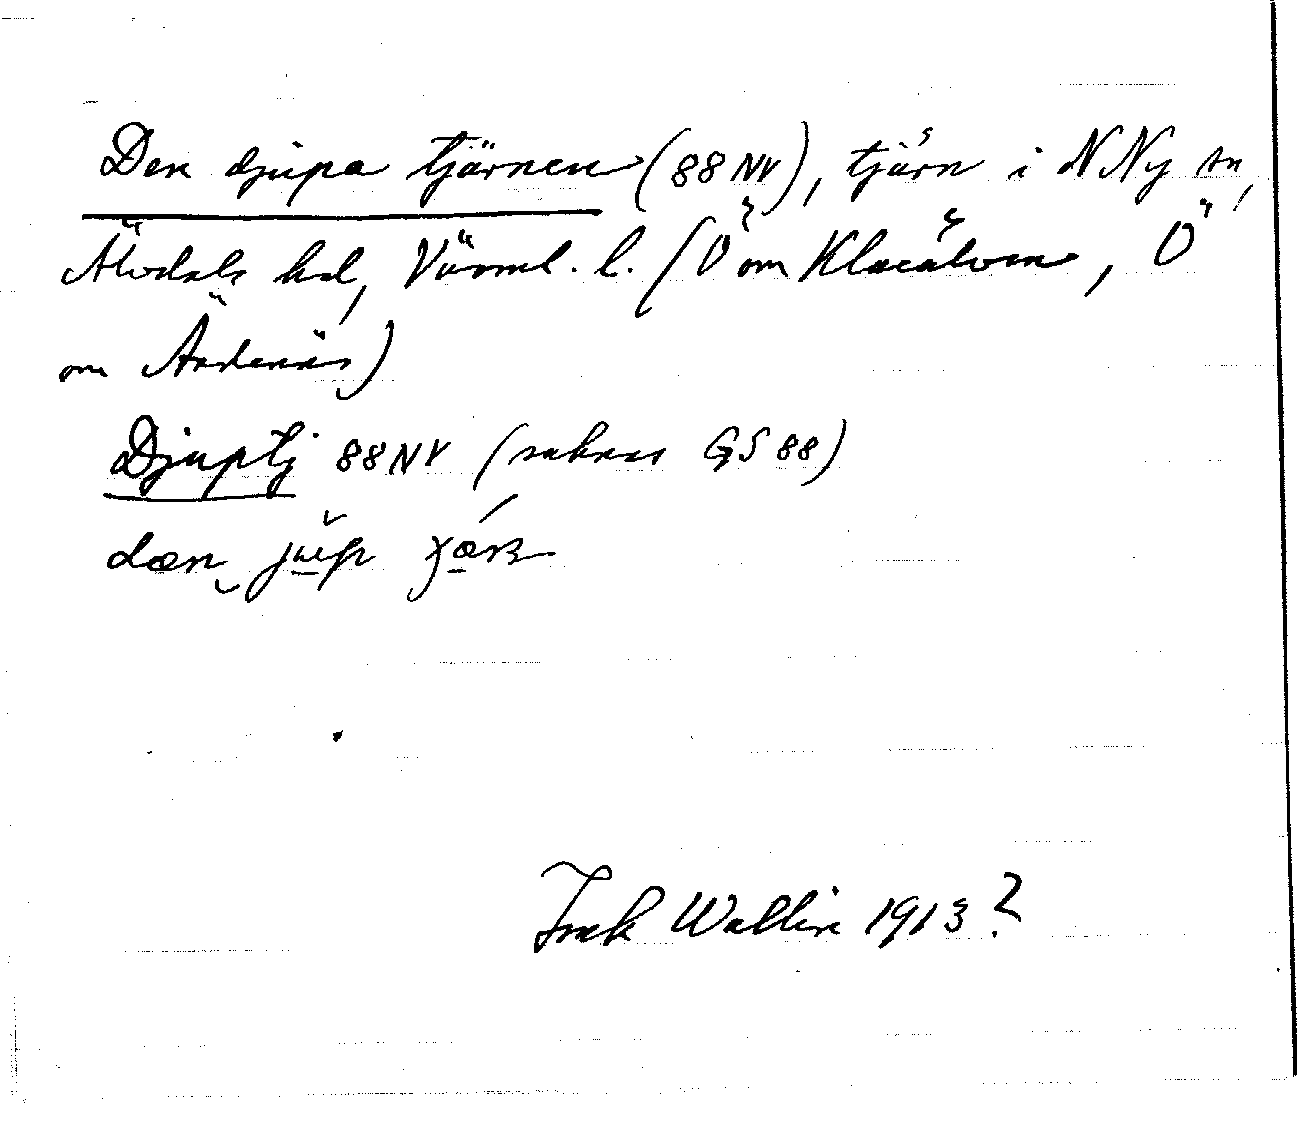 Den djupa tjärnen (88 NV), tjärn i N Ny sn,
Älvdals hd, Värml. l. (Ö om Klarälven, Ö
om Ändenäs)
Djuptj 88 NV (saknas GS 88)
dæn
Wallin 1913?